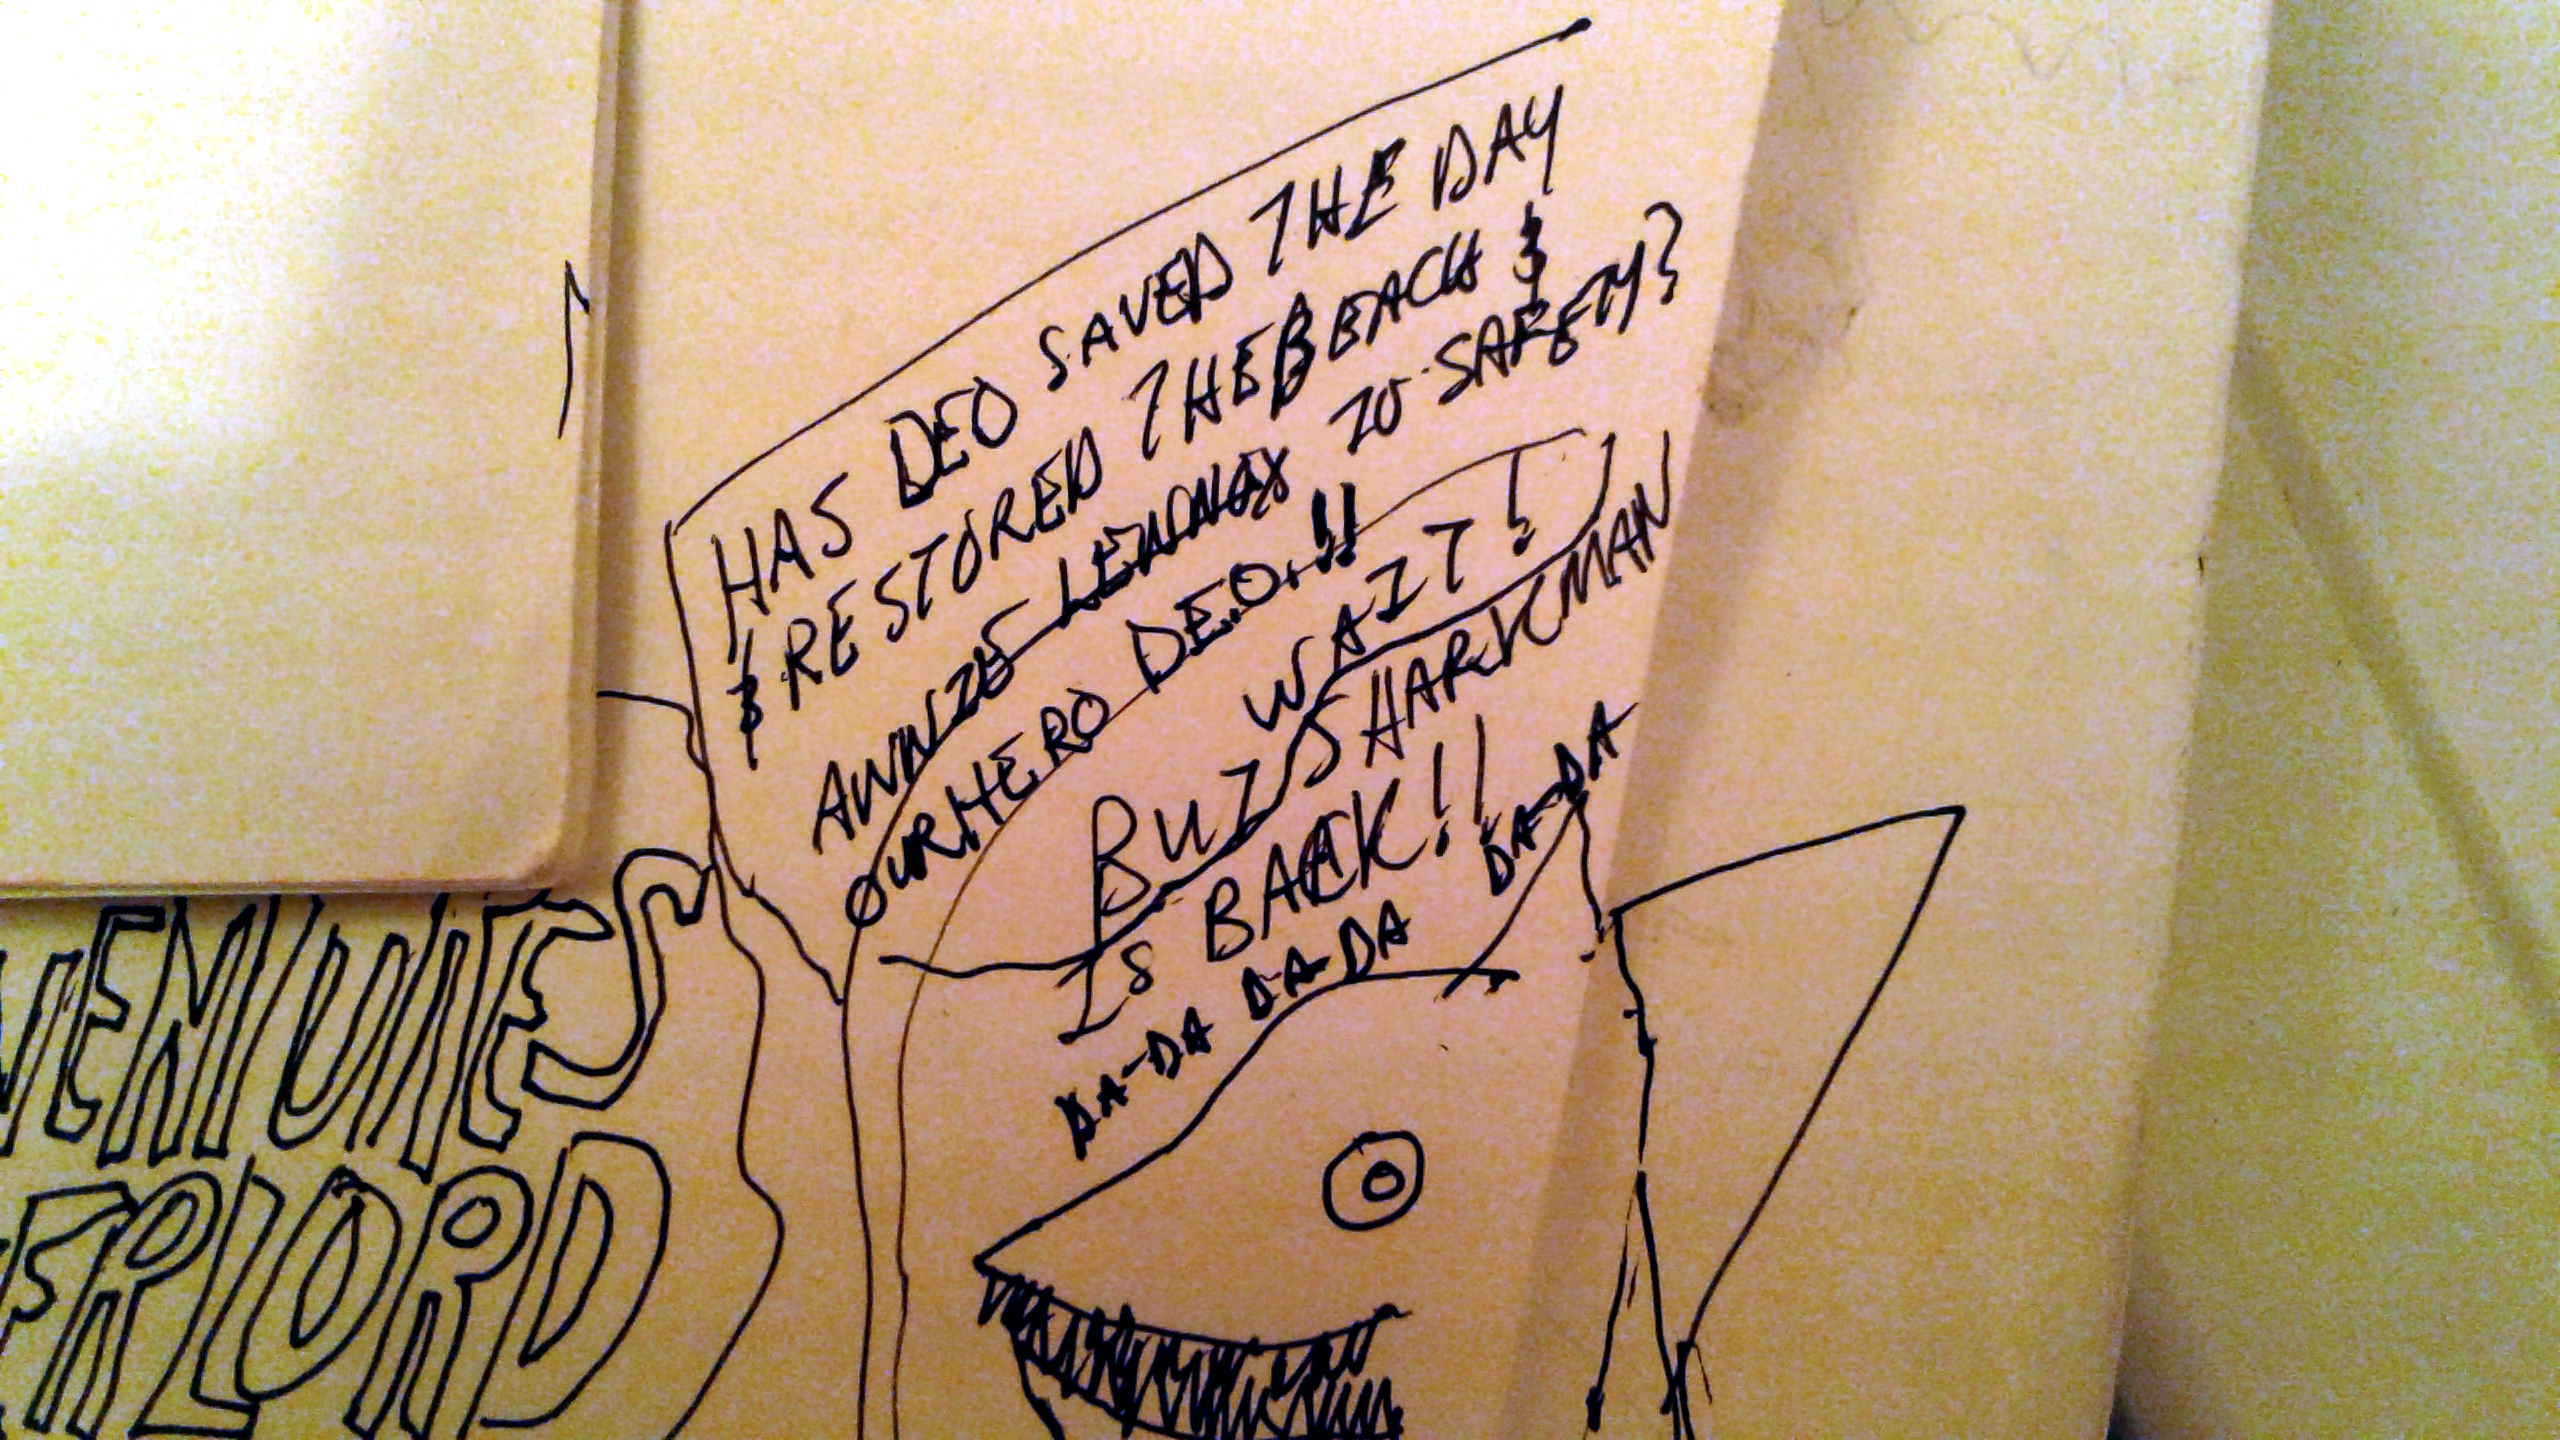 HAS DEO SAVED THE DAY
& RESTORED THE BEACH &
ANNIE LENNOX TO SAFETY?
OUR HERO DEO!!
BUT WAIT!
SHARKMAN
IS BACK!!
DA-DA DA-DA DA-DA
VENTURES
ERLORD